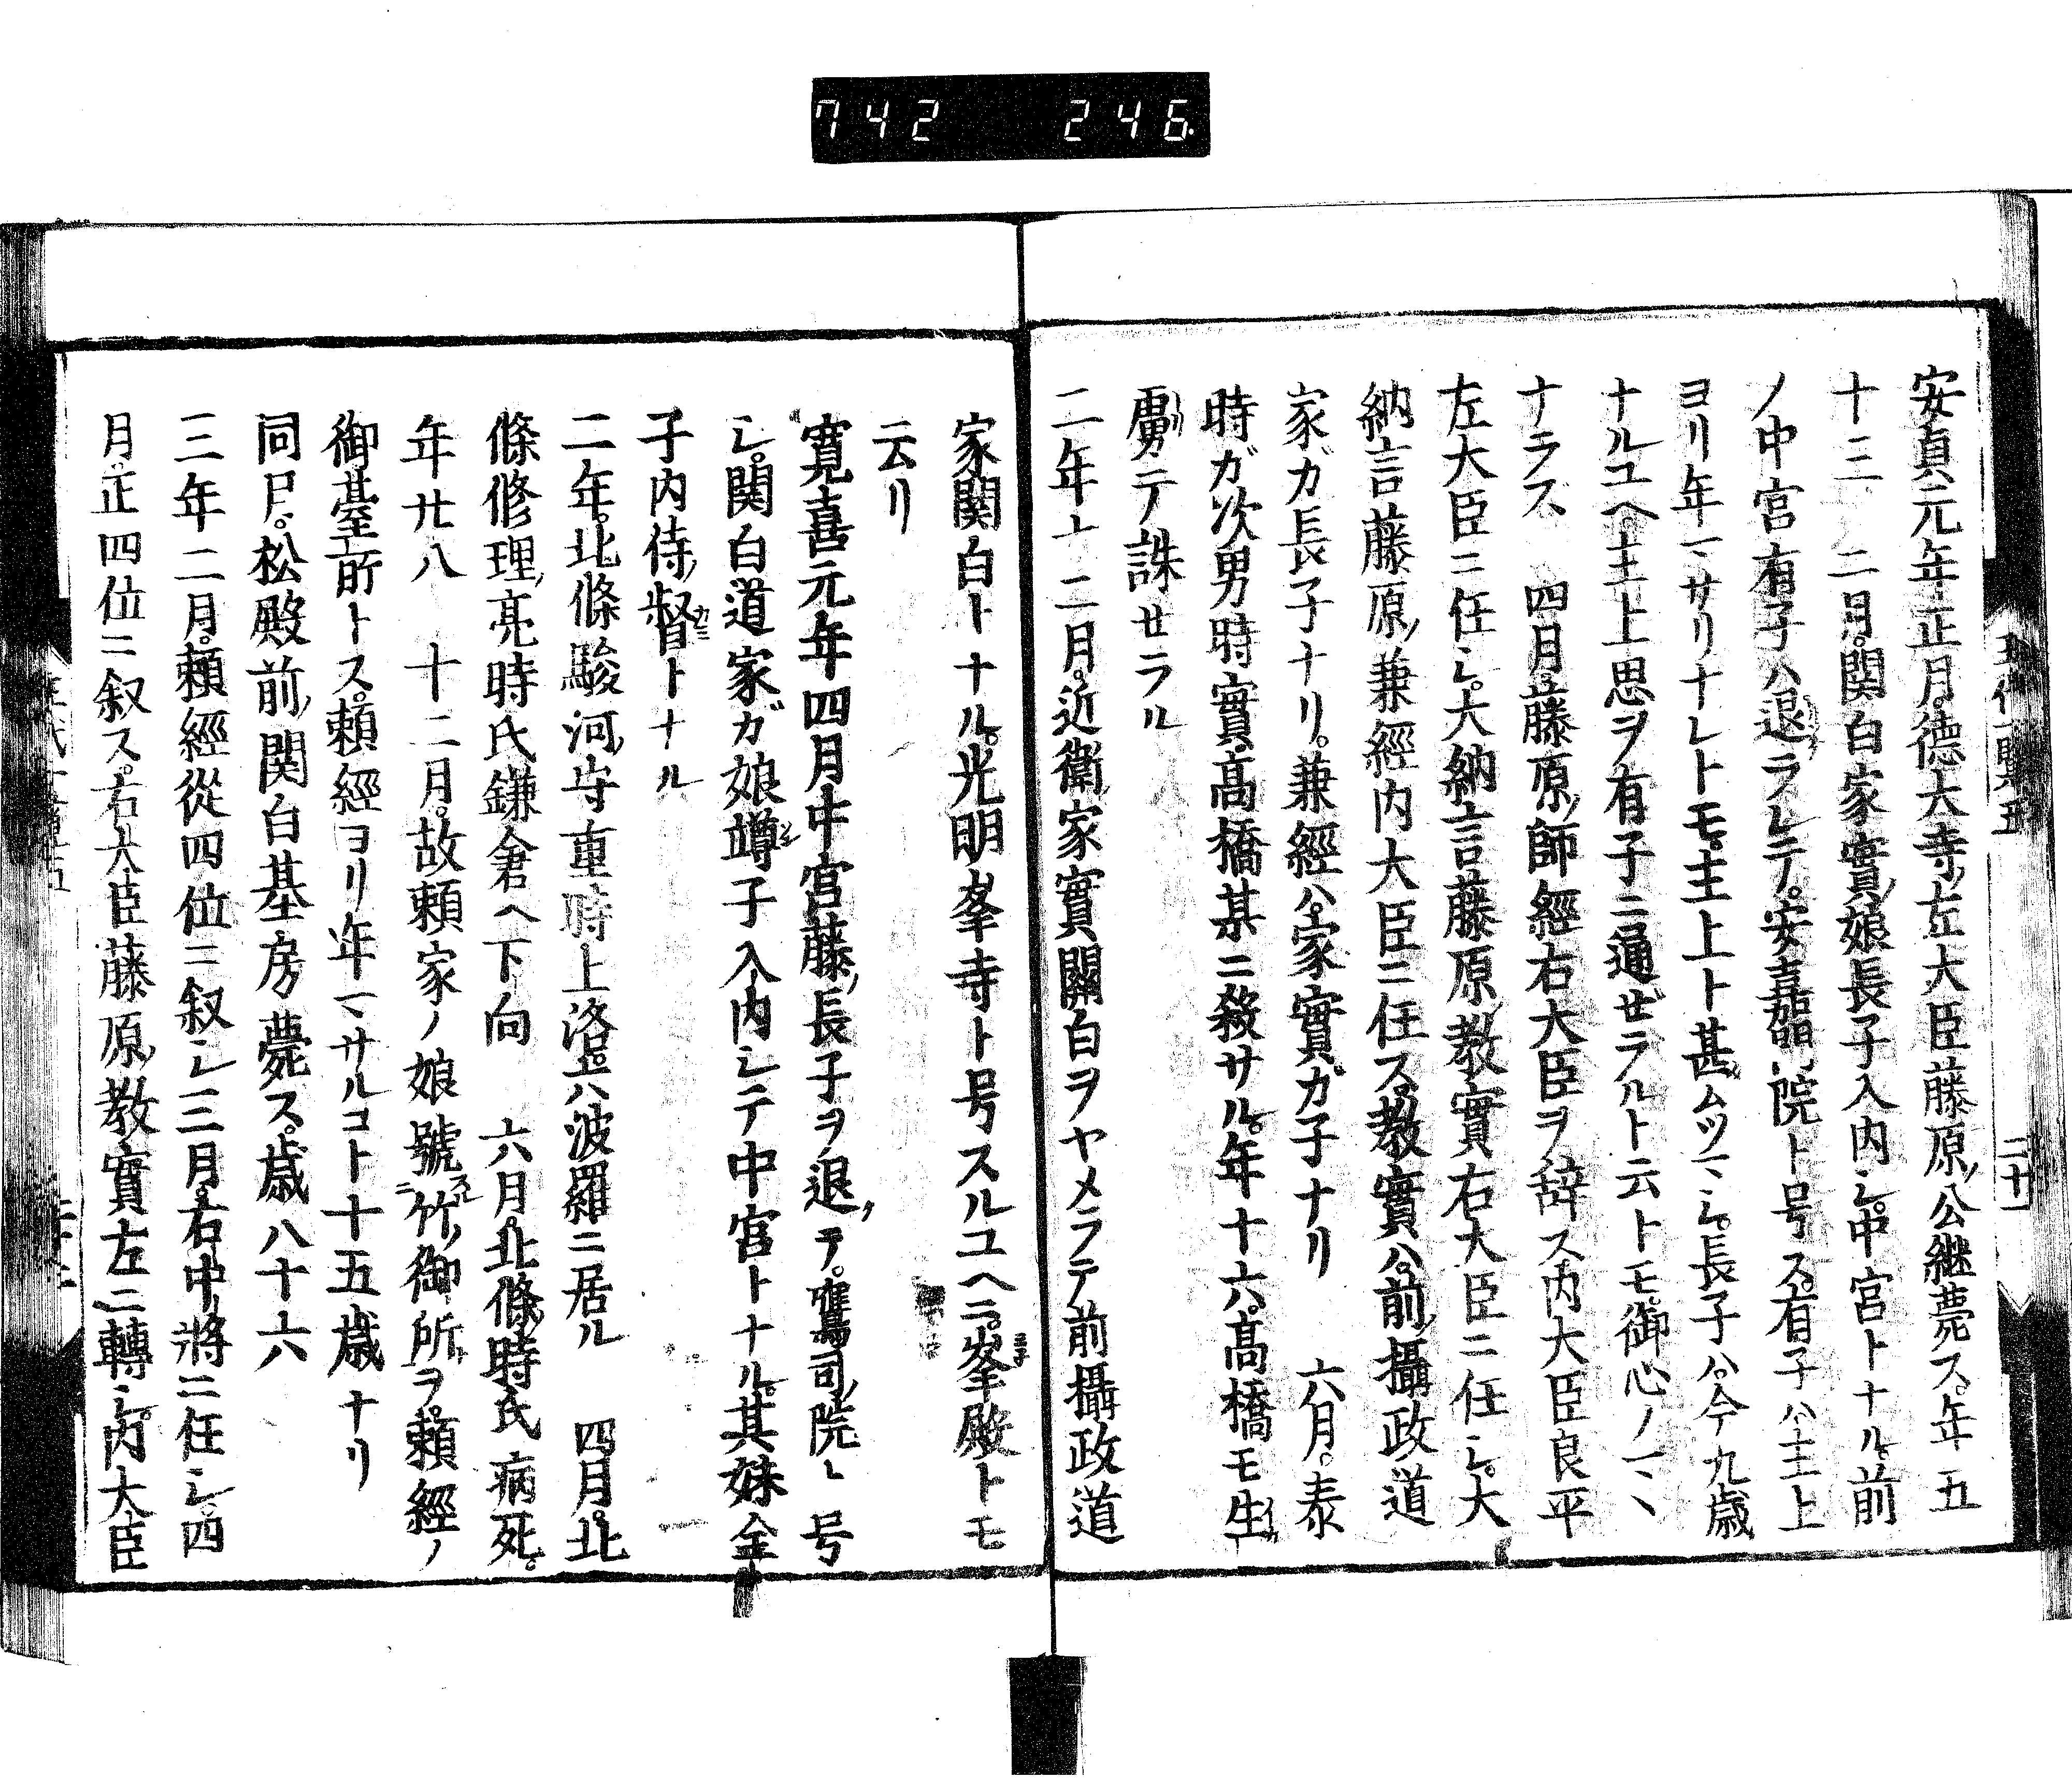 742 246
安貞元年正月。徳大寺左大臣藤原公継薨ス。年五
十三 二月。関白家實娘長子入内シ。中宮トナル。前
ノ中宮有子ハ退ラレテ。安嘉門院ト号ス。有子ハ主上
ヨリ年マサリナレトモ。主上ト甚ムツマシ。長子ハ今九歳
ナルユヘ。主上思ヲ有子ニ通ゼラルト云トモ。御心ノマヽ
ナラス 四月。藤原師經右大臣ヲ辞ス。内大臣良平
左大臣ニ任シ。大納言藤原教實右大臣ニ任シ。大
納言藤原兼經内大臣ニ任ス。教實ハ。前攝政道
家ガ長子ナリ。兼經ハ。家實ガ子ナリ 六月。泰
時ガ次男時實。髙橋某ニ殺サル。年十六。髙橋モ生
虜テ誅セラル
二年十二月。近衛家實關白ヲヤメラテ前攝政道
家関白トナル。光明峯寺ト号スルユヘニ。峯殿トモ
云リ
寛喜元年四月中宮藤長子ヲ退テ。鷹司院ト号
シ。関白道家ガ娘竴子入内シテ中宮トナル。其妹全
子内侍督トナル
二年。北條駿河守重時上洛。六波羅ニ居ル 四月。北
條修理亮時氏鎌倉ヘ下向 六月。北條時氏病死。
年廿八 十二月。故頼家ノ娘號竹御所ヲ。頼經ノ
御臺所トス。頼經ヨリ年マサルコト十五歳ナリ
同月。松殿前関白基房薨ス。歳八十六
三年二月。頼經從四位ニ叙シ三月。右中將ニ任シ。四
月正四位ニ叙ス。右大臣藤原教實左ニ轉シ。内大臣